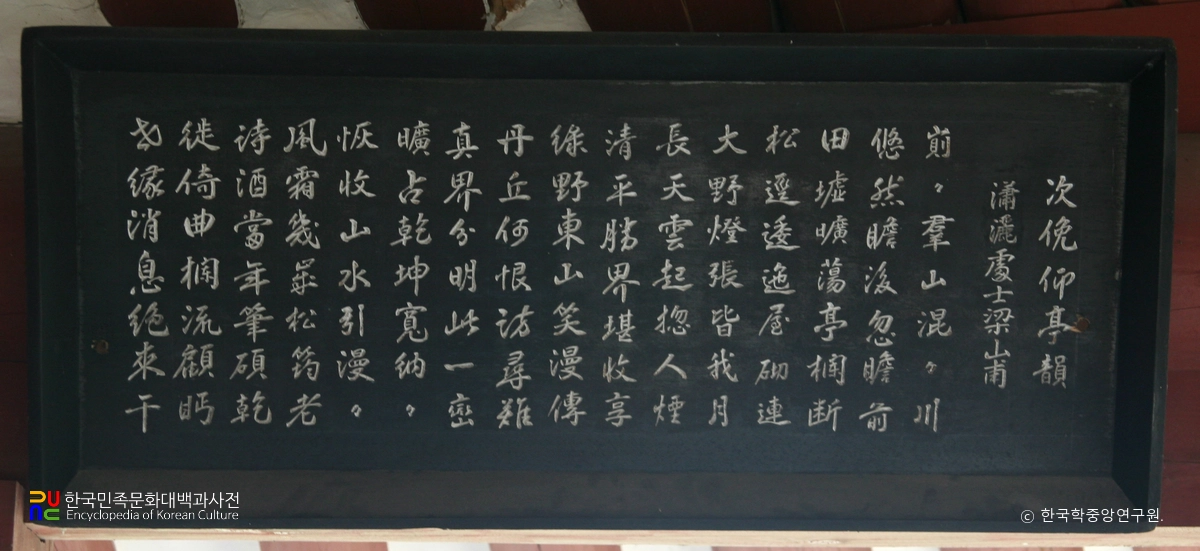 次俛仰亭韻
瀟灑處士梁山甫
崱〻羣山混〻川
悠然瞻後忽瞻前
田墟曠蕩亭欄断
松逕逶迤屋砌連
大野燈張皆我月
長天雲起摠人煙
清平勝界堪收享
綠野東山笑漫傳
丹丘何恨訪尋難
真界分明此一巒
曠占乾坤寬納〻
恢收山水引漫〻
風霜幾歲松筠老
詩酒當年筆硯乾
徙倚曲欄流顧眄
世緣消息絶來干
한국민족문화대백과사전
Encyclopedia of Korean Culture
ⓒ 한국학중앙연구원.